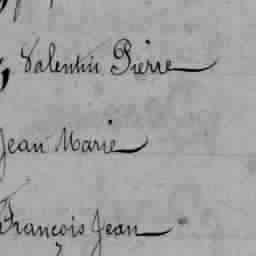 Valentin Pierre
Jean Marie
François Jean